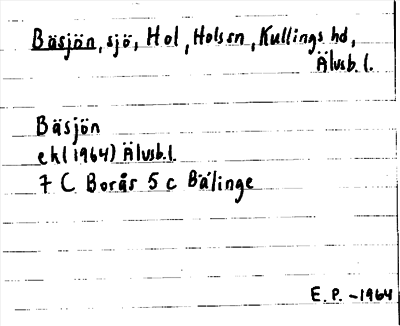 Bäsjön, sjö, Hol, Hols sn, Kullings hd,
Älvsb. l.
Bäsjön
ekl (1964) Älvsb. l.
7 C Borås 5 c Bälinge
E. P. -1964